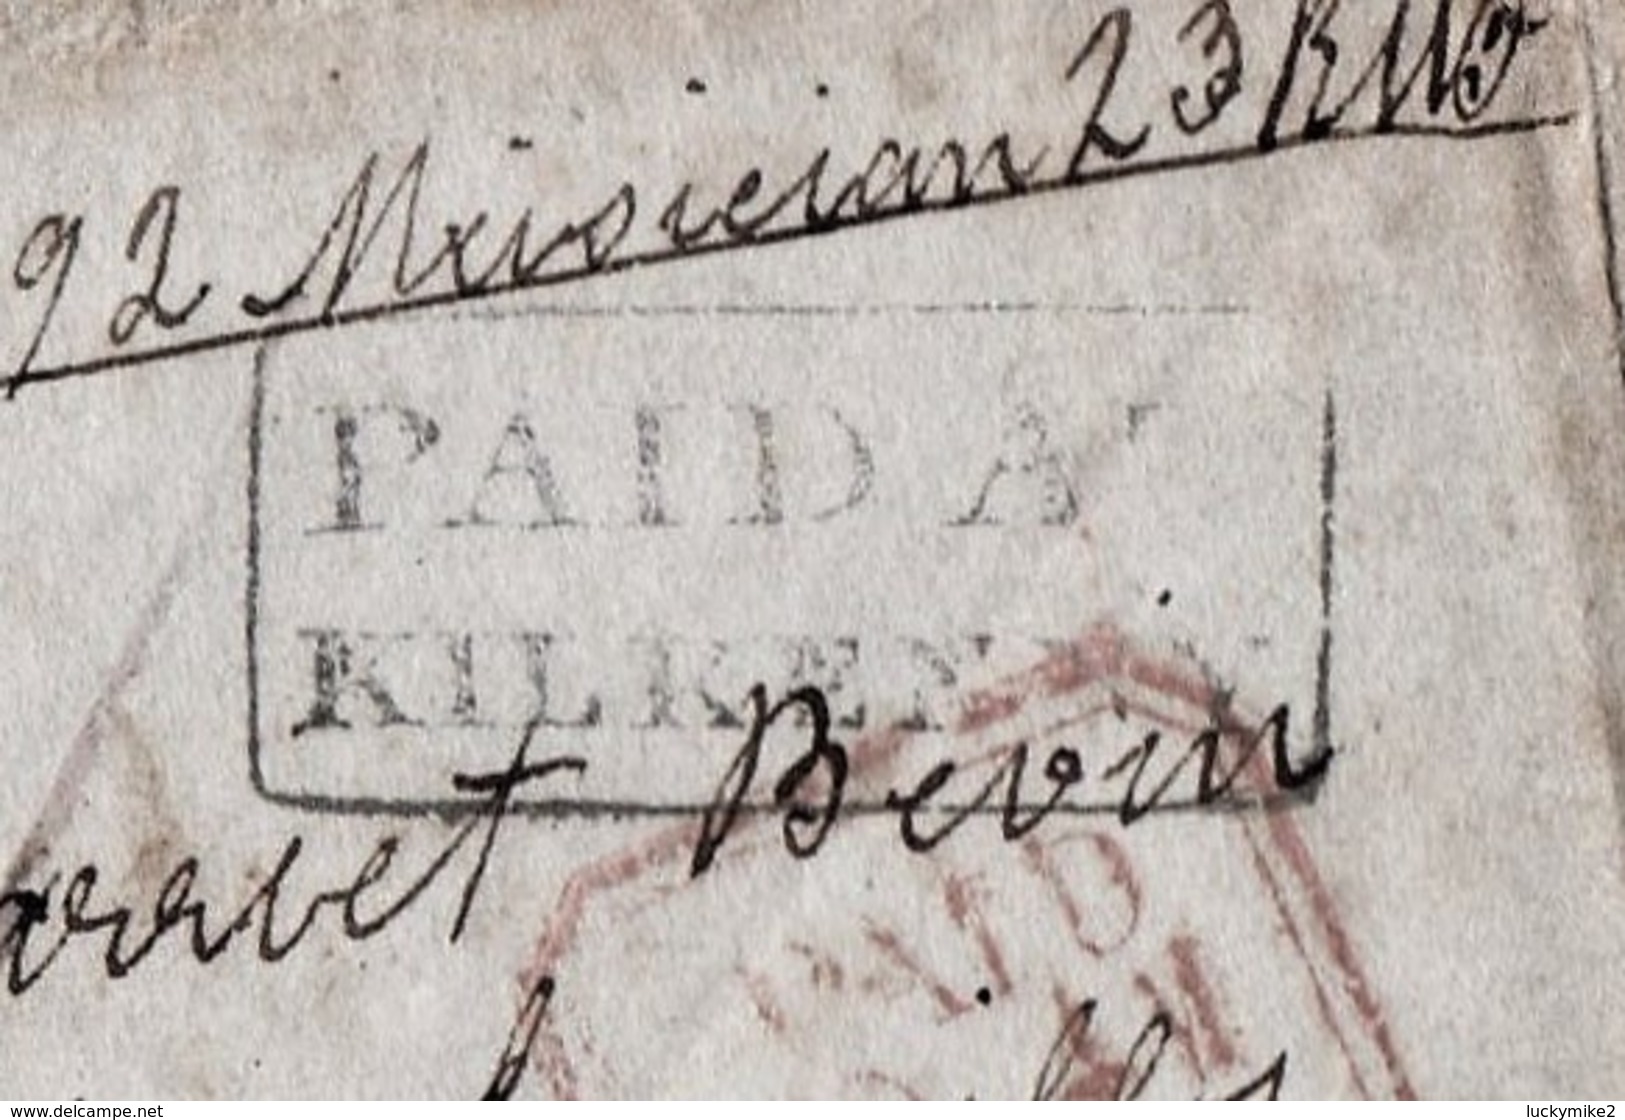 92 Meisieian 23 RWF
PAID A
KILKENNY
Bevin
PAID
www.delcampe.net
luckymike2